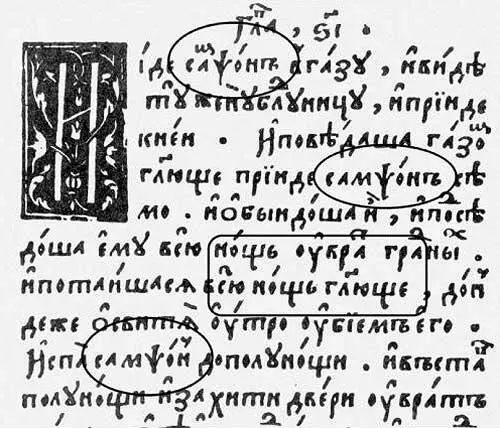 гл҃а , ѕ҃і .
И іде самѱо́нъ в̾га́зꙋ , и҆ви́дѣ
тꙋ̀женꙋ̀блꙋ́ницꙋ , и҆прїи́де
кне́и . И҆повѣ́даша га́зо
гл҃юще прїи́де самѱо́нъ сѣ
мо . и҆ѻ҆быидо́ша и҆̀ , и҆посѣ
до́ша є҆мꙋ̀ всю̀ но́щь оу҆вра́ гра́ны .
и҆потаи́шасѧ всю̀ но́щь гл҃юще , до́и
деже ѡ҆свита оу҆́тро оу҆бїемъ его .
И҆спа̀ самѱо́н дополꙋно́щи . и҆въста
полꙋно́щи и҆захити две́ри оу҆вра́тъ